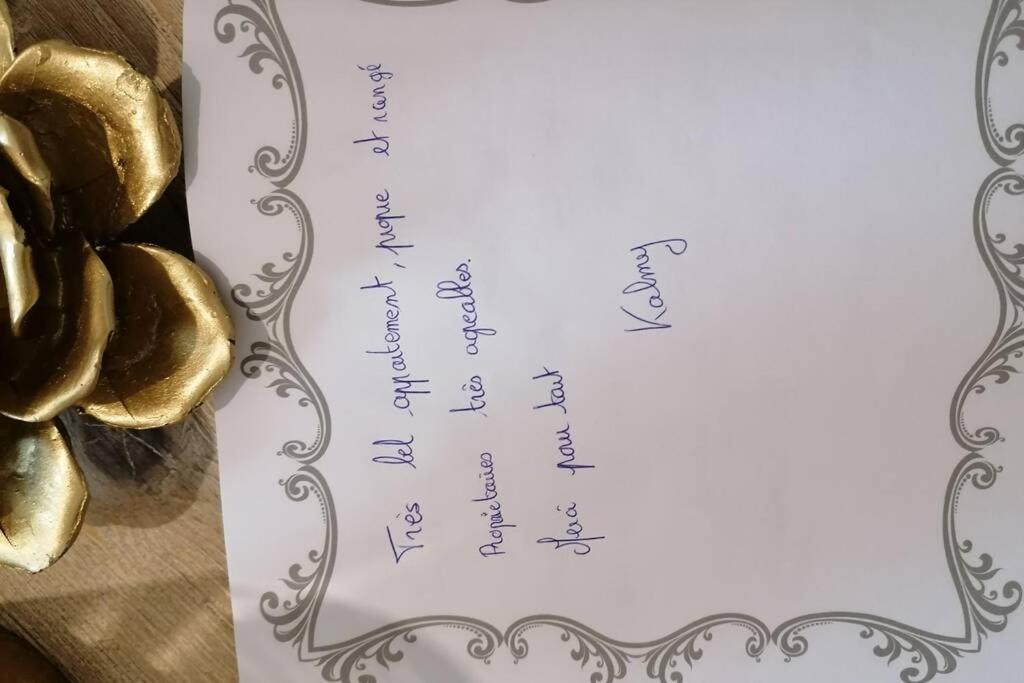 Très bel appartement, propre et rangé
Propriétaires très agréables.
Merci pour tout
Kalmy